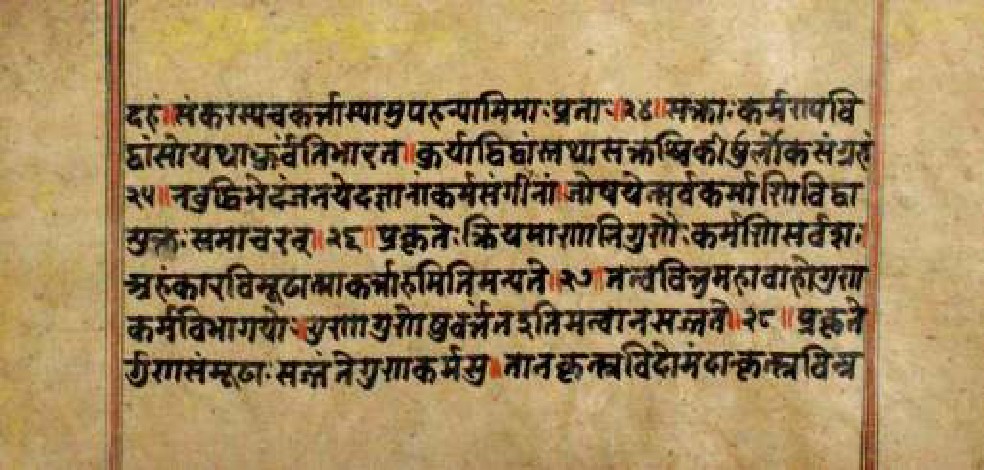 दहं॥संकरस्यचकर्त्तास्यामुपहन्यामिमाःप्रजाः॥२४॥सक्ताःकर्मण्यवि
द्वांसोयथाकुर्वंतिभारत॥कुर्याद्विद्वांस्तथासक्तश्चिकीर्षुर्लोकसंग्रहं
२५॥नबुद्धिभेदंजनयेदज्ञानांकर्मसंगीनां॥जोषयेत्सर्वकर्माणिविद्वा
युक्तःसमाचरन्॥२६॥प्रकृतेःक्रियमाणानिगुणैःकर्मणिसर्वशः
अहंकारविमूढात्माकर्त्ताहमितिमन्यते॥२७॥तत्त्ववित्तुमहाबाहोगुण
कर्मविभागयोः॥गुणागुणेषुवर्त्तंतइतिमत्वानसज्जते॥२८॥प्रकृते
र्गुणसंमूढाःसज्जंतेगुणकर्मसु॥तानकृत्स्नविदोमंदान्कृत्स्नविन्न